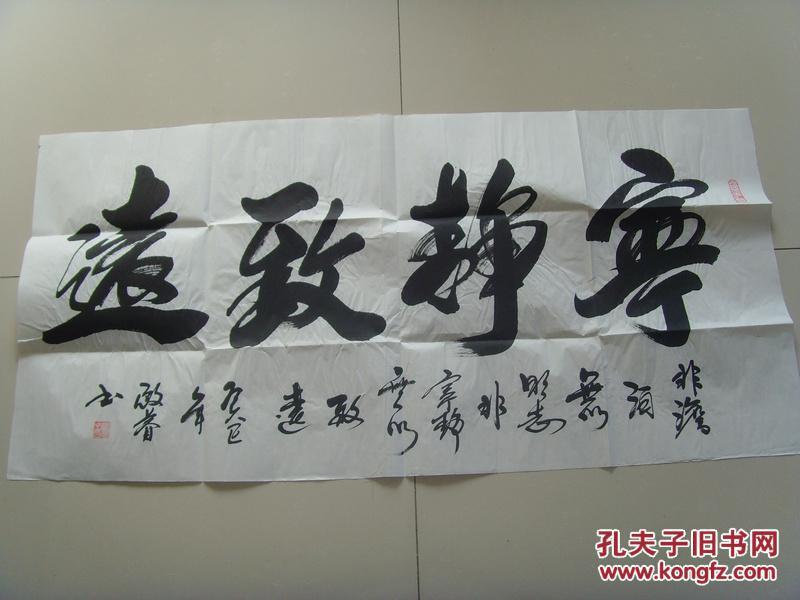 寧靜致遠
非澹泊無以明志非寧靜無以致遠
年
書
孔夫子旧书网
www.kongfz.com